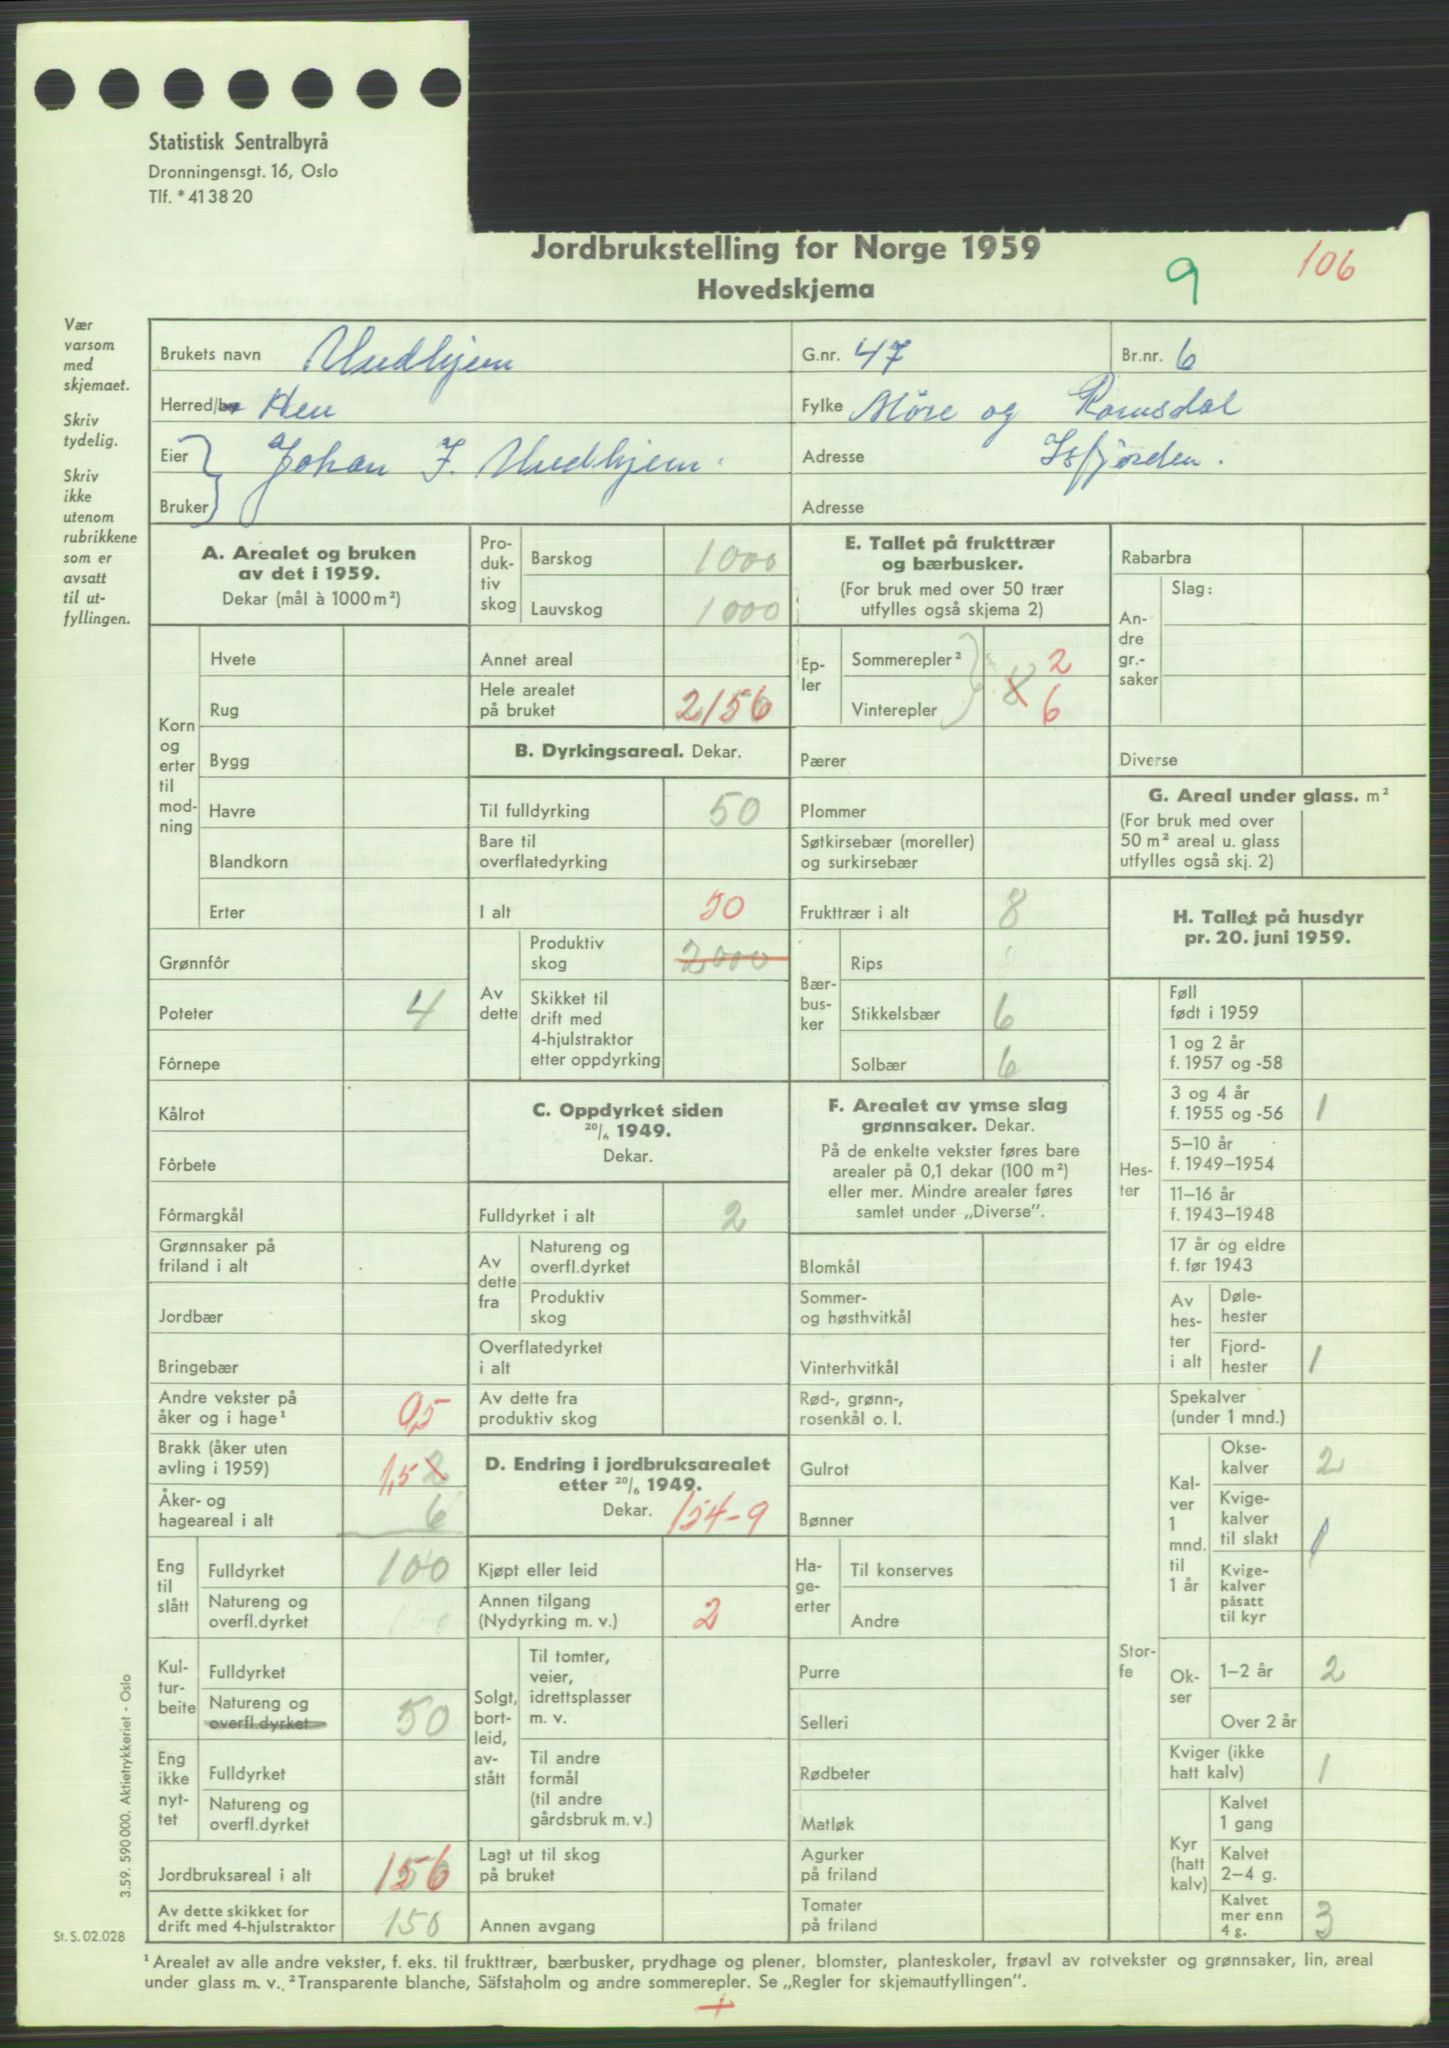 Statistisk Sentralbyrå
Dronningensgt. 16, Oslo
Tlf. * 41 38 20
Jordbrukstelling for Norge 1959
Hovedskjema
9
106
Vær
varsom
med
skjemaet.
Skriv
tydelig.
Skriv
ikke
utenom
rubrikkene
som er
avsatt
til ut-
fyllingen.
Brukets navn
G.nr. 47
Br.nr. 6
Herred/by Hen
Fylke Møre og Romsdal
Eier Johan J.
Adresse Isfjorden.
Bruker
Adresse
A. Arealet og bruken
av det i 1959.
Dekar (mål à 1000 m²)
Korn
og
erter
til
mod-
ning
Hvete
Rug
Bygg
Havre
Blandkorn
Erter
Grønnfôr
Poteter 4
Fôrnepe
Kålrot
Fôrbete
Fôrmargkål
Grønnsaker på
friland i alt
Jordbær
Bringebær
Andre vekster på
åker og i hage¹ 0,5
Brakk (åker uten
avling i 1959) 1,5 2
Åker- og
hageareal i alt 6
Eng
til
slått
Fulldyrket 100
Natureng og
overfl.dyrket
Kul-
tur-
beite
Fulldyrket
Natureng og
overfl.dyrket 50
Eng
ikke
nyt-
tet
Fulldyrket
Natureng og
overfl.dyrket
Jordbruksareal i alt 156
Av dette skikket for
drift med 4-hjulstraktor 150
Pro-
duk-
tiv
skog
Barskog 1000
Lauvskog 1000
Annet areal
Hele arealet
på bruket 2156
B. Dyrkingsareal. Dekar.
Til fulldyrking 50
Bare til
overflatedyrking
I alt 50
Av
dette
Produktiv
skog 2000
Skikket til
drift med
4-hjulstraktor
etter oppdyrking
C. Oppdyrket siden
20/6 1949.
Dekar.
Fulldyrket i alt 2
Av
dette
fra
Natureng og
overfl.dyrket
Produktiv
skog
Overflatedyrket
i alt
Av dette fra
produktiv skog
D. Endring i jordbruksarealet
etter 20/6 1949.
Dekar. 154-9
Kjøpt eller leid
Annen tilgang
(Nydyrking m. v.) 2
Solgt,
bort-
leid,
av-
stått
Til tomter,
veier,
idrettsplasser
m. v.
Til andre
formål
(til andre
gårdsbruk m. v.)
Lagt ut til skog
på bruket
Annen avgang
E. Tallet på frukttrær
og bærbusker.
(For bruk med over 50 trær
utfylles også skjema 2)
Ep-
ler
Sommerepler² 2
8
Vinterepler 6
Pærer
Plommer
Søtkirsebær (moreller)
og surkirsebær
Frukttrær i alt 8
Bær-
bus-
ker
Rips
Stikkelsbær 6
Solbær 6
F. Arealet av ymse slag
grønnsaker. Dekar.
På de enkelte vekster føres bare
arealer på 0,1 dekar (100 m²)
eller mer. Mindre arealer føres
samlet under „Diverse”.
Blomkål
Sommer-
og høsthvitkål
Vinterhvitkål
Rød-, grønn-,
rosenkål o. l.
Gulrot
Bønner
Ha-
ge-
erter
Til konserves
Andre
Purre
Selleri
Rødbeter
Matløk
Agurker
på friland
Tomater
på friland
Rabarbra
An-
dre
gr.-
saker
Slag:
Diverse
G. Areal under glass. m²
(For bruk med over
50 m² areal u. glass
utfylles også skj. 2)
H. Tallet på husdyr
pr. 20. juni 1959.
Hes-
ter
Føll
født i 1959
1 og 2 år
f. 1957 og -58
3 og 4 år
f. 1955 og -56 1
5–10 år
f. 1949–1954
11–16 år
f. 1943–1948
17 år og eldre
f. før 1943
Av
hes-
ter
i alt
Døle-
hester
Fjord-
hester 1
Stor-
fe
Spekalver
(under 1 mnd.)
Kal-
ver
1
mnd.
til
1 år
Okse-
kalver 2
Kvige-
kalver
til slakt 1
Kvige-
kalver
påsatt
til kyr
Ok-
ser
1–2 år 2
Over 2 år
Kviger (ikke
hatt kalv) 1
Kyr
(hatt
kalv)
Kalvet
1 gang
Kalvet
2–4 g.
Kalvet
mer enn
4 g. 3
3.59. 590 000. Aktietrykkeriet - Oslo
St. S. 02.028
¹ Arealet av alle andre vekster, f. eks. til frukttrær, bærbusker, prydhage og plener, blomster, planteskoler, frøavl av rotvekster og grønnsaker, lin, areal
under glass m. v. ² Transparente blanche, Säfstaholm og andre sommerepler. Se „Regler for skjemautfyllingen”.